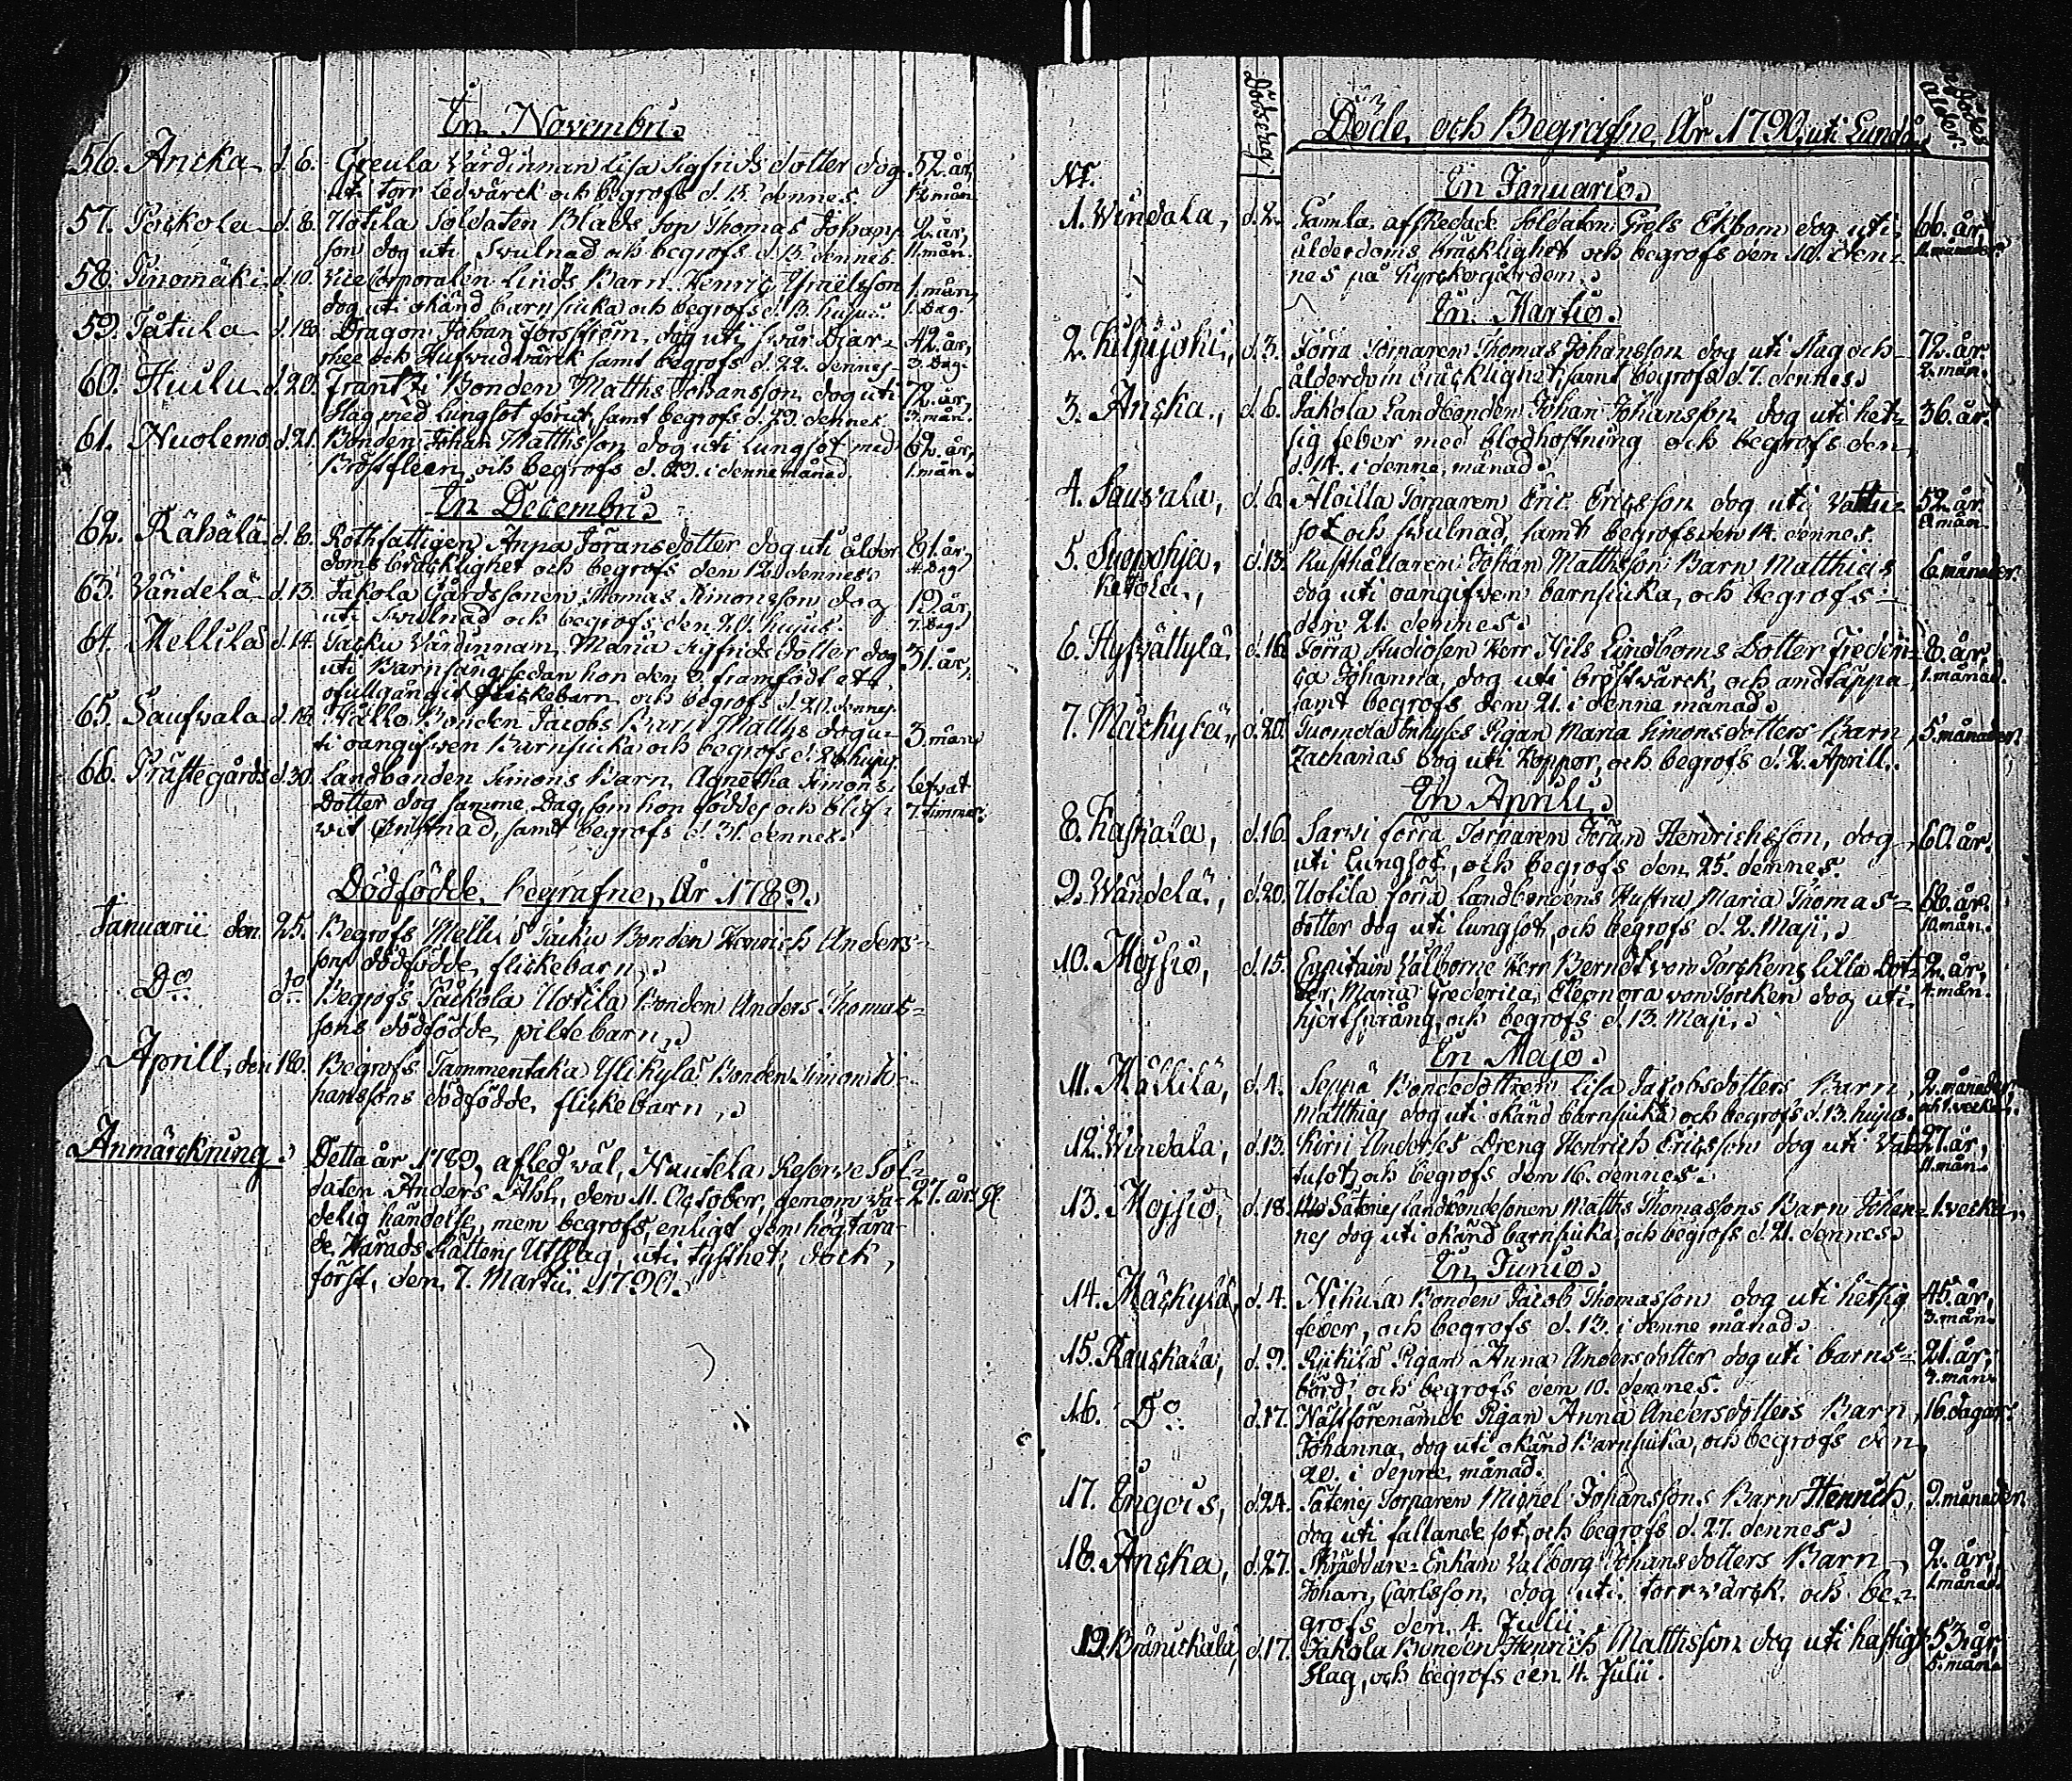 En Novembri
56. Ancka d. 6. Greula Värdinnan Lisa Sigfrids dotter dog 52. år,
uti torr ledvärck och begrofs d. 15. dennes. mån.
57. d. 8. Uotila Soldaten Blads Son Thomas Johans 2. år,
son dog uti Svulnad och begrofs d. 15. dennes 11. mån.
58. d. 10. Vice Corporalen Linds Barn Henric 1. mån,
dog uti okänd barnsiucka och begrofs d. 1. Dag.
59. Tåtula d. 18. Dragon Johan dog uti svår Diar- 42. år,
rhee och Hufvudvärck samt begrofs d. 22. dennes 3. Dag.
60. Huilu d. 20. Frantzi Bonden Matths Johansson dog uti 72. år,
Slag med Lungsot förut, samt begrofs d. 29. dennes. 3. mån.
61. Nuolemo d. 21. Bonden Johan Matthsson dog uti Lungsot med 62. år,
och begrofs d. 29. i denne månad. 1. mån.
En Decembri
62. Rähälä d. 8. Rothfattigen Anna Jöransdotter dog uti ålder 81. år,
doms bräcklighet och begrofs den 12. dennes 4. Dag.
63. Vändelä d. 13. Jakola Gårdssonen Thomas Simonsson dog 19. år,
uti Svulnad och begrofs den 20. hujus. 7. Dag.
64. Mellilä d. 14. Värdinnan Maria Sigfrids dotter dog 31. år,
uti Barnsäng, sedan hon den 9. framfödt ett
ofullgångit flickebarn, och begrofs d. 20. dennes.
65. Saufvala d. 18. Bonden Jacobs Barn Matths dog u- 3. mån
ti oangifven Barnsiucka och begrofs d. 26. hujus.
66. Prästegårds d. 30. Landbonden Simons Barn Agnetha Simons- Lefvat
Dotter dog samma Dag, som hon föddes och blif- 7. timmer.
vit Christnad, samt begrofs d. 31. dennes.
Dödfödde, begrafne, År 1789.
Januarii den 25. Begrofs Mellilä Bonden Henrich Anders-
sons dödfödde, flickebarn.
Do do Begrofs Uotila Bonden Anders Thomas-
sons dödfödde, piltebarn.
Aprill, den 18. Begrofs Tammentaka Ylikylä Bonden Simon Jo-
hanssons dödfödde, flickebarn.
Anmärckning. Detta år 1789, afled väl, Nautela Reserve Sol-
daten Anders Ahl, den 11. October, genom vå- 27. år
delig händelse, men begrofs, enligt den högtära-
de, Härads Rättens Utslag, uti tysthet, dock,
först, den, 7. Martii, 1790.
Dödsdag
Döde och Begrafne År 1790, uti Lundo
ålder.
No.
En Januario
1. Windala, d. 2. Gamla afskedade Soldaten Grels Ekbom dog uti 66. år
ålderdoms bräcklighet och begrofs den 10. den-
nes på Kyrckogården.
En Martio.
2. Kilpijoki, d. 3. Förra Torparen Thomas Johansson dog uti Slag och 72. år.
ålderdom bräcklighet, samt begrofs d. 7. dennes. 2. mån.
3. Ancka, d. 6. Jakola Landbonden Johan Johansson dog uti het- 36. år.
sig feber med blodhostning och begrofs den
d. 14. i denne månad.
4. Sauvala, d. 6. Torparen Eric Ericsson dog uti Vattu- 52. år
sot och svulnad, samt begrofs den 14. dennes. mån.
5. Suopohja, d. 13. Rusthållaren Johan Matthsson Barn Matthias 6 månader.
Ketola, dog uti oangifven barnsiucka, och begrofs
den 21. dennes.
6. d. 18. Förra Studiosen Herr Nils Lindboms Dotter Frederi- 8. år,
ca Johanna, dog uti bröstvärck, och andtäppa, 1. månad.
samt begrofs den 21. i denne månad.
7. Mäckylä, d. 20. Tuomola Inhyses Pigan Maria Simonsdotters Barn, 5. månader
Zacharias dog uti Koppor, och begrofs d. 2. Aprill.
En Aprili
8. Kaskala, d. 16. Sarvi förra Torparen Jöran Henrichsson, dog 60. år.
uti Lungsot, och begrofs den 25. dennes.
9. Wändelä, d. 20. Uotila förra Landbondens Hustru Maria Thomas- 66. år.
dotter dog uti lungsot, och begrofs d. 2. Maji. 10. mån.
10. Moisio, d. 15. Capitain Välborne Herr Berndt von Torckens lilla Dot- 2. år,
ter, Maria Frederica, Eleonora von Torcken dog uti 4. mån.
hjertsprång, och begrofs d. 13. Maji.
En Majo.
11. Mällilä, d. 4. Seppä Bondedottren Lisa Jakobsdotters Barn, 2. månader
Matthias dog uti okänd barnsiucka och begrofs d. 13. hujus. och 1. vecka.
12. Windala, d. 13. Korri Anderses Dreng Henrich Ericsson dog uti Vat- 27. år,
tusot, och begrofs den 16. dennes. 11. mån.
13. Moisio, d. 18. Säteries landbondesonen Matths Thomassons Barn Johan- 1. vecka,
nes dog uti okänd barnsiucka, och begrofs d. 21. dennes.
En Junio.
14. Mäckylä, d. 4. Nikula Bonden Jacob Thomasson dog uti hetsig 45. år,
feber, och begrofs d. 13. i denne månad. 3. mån.
15. Rauskala, d. 9. Pigan Anna Andersdotter dog uti barns- 21. år,
börd, och begrofs den 10. dennes. mån.
16. Do d. 17. Nästförenämde Pigan Anna Andersdotters Barn, 16. dagar.
Johanna, dog uti okänd Barnsiucka, och begrofs den
20. i denne månad.
17. Engois, d. 24. Säteries Torparen Michel Johanssons Barn Henrich, 9. månader
dog uti fallande sot, och begrofs d. 27. dennes.
18. Ancka, d. 27. Skräddare-Enkan Valborg Johansdotters Barn, 2. år,
Johan Carlsson, dog uti torrvärck, och be- 1. månad.
grofs den, 4. Julii,
19. d. 17. Jakola Bonden Henrich Matthsson dog uti haftigt 53. år,
Slag, och begrofs den 4. Julii. 5. mån.